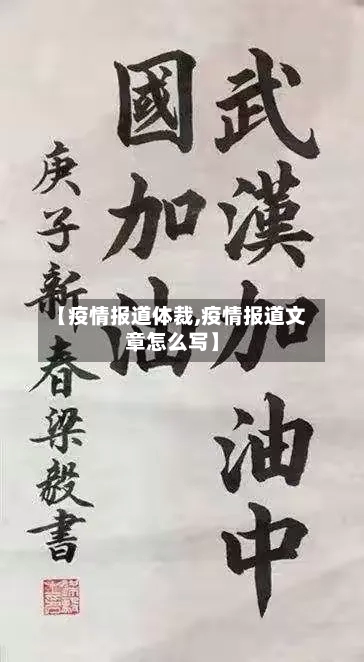 武漢加油中
國加油
庚子新春梁毅書
【疫情报道体裁,疫情报道文
章怎么写】